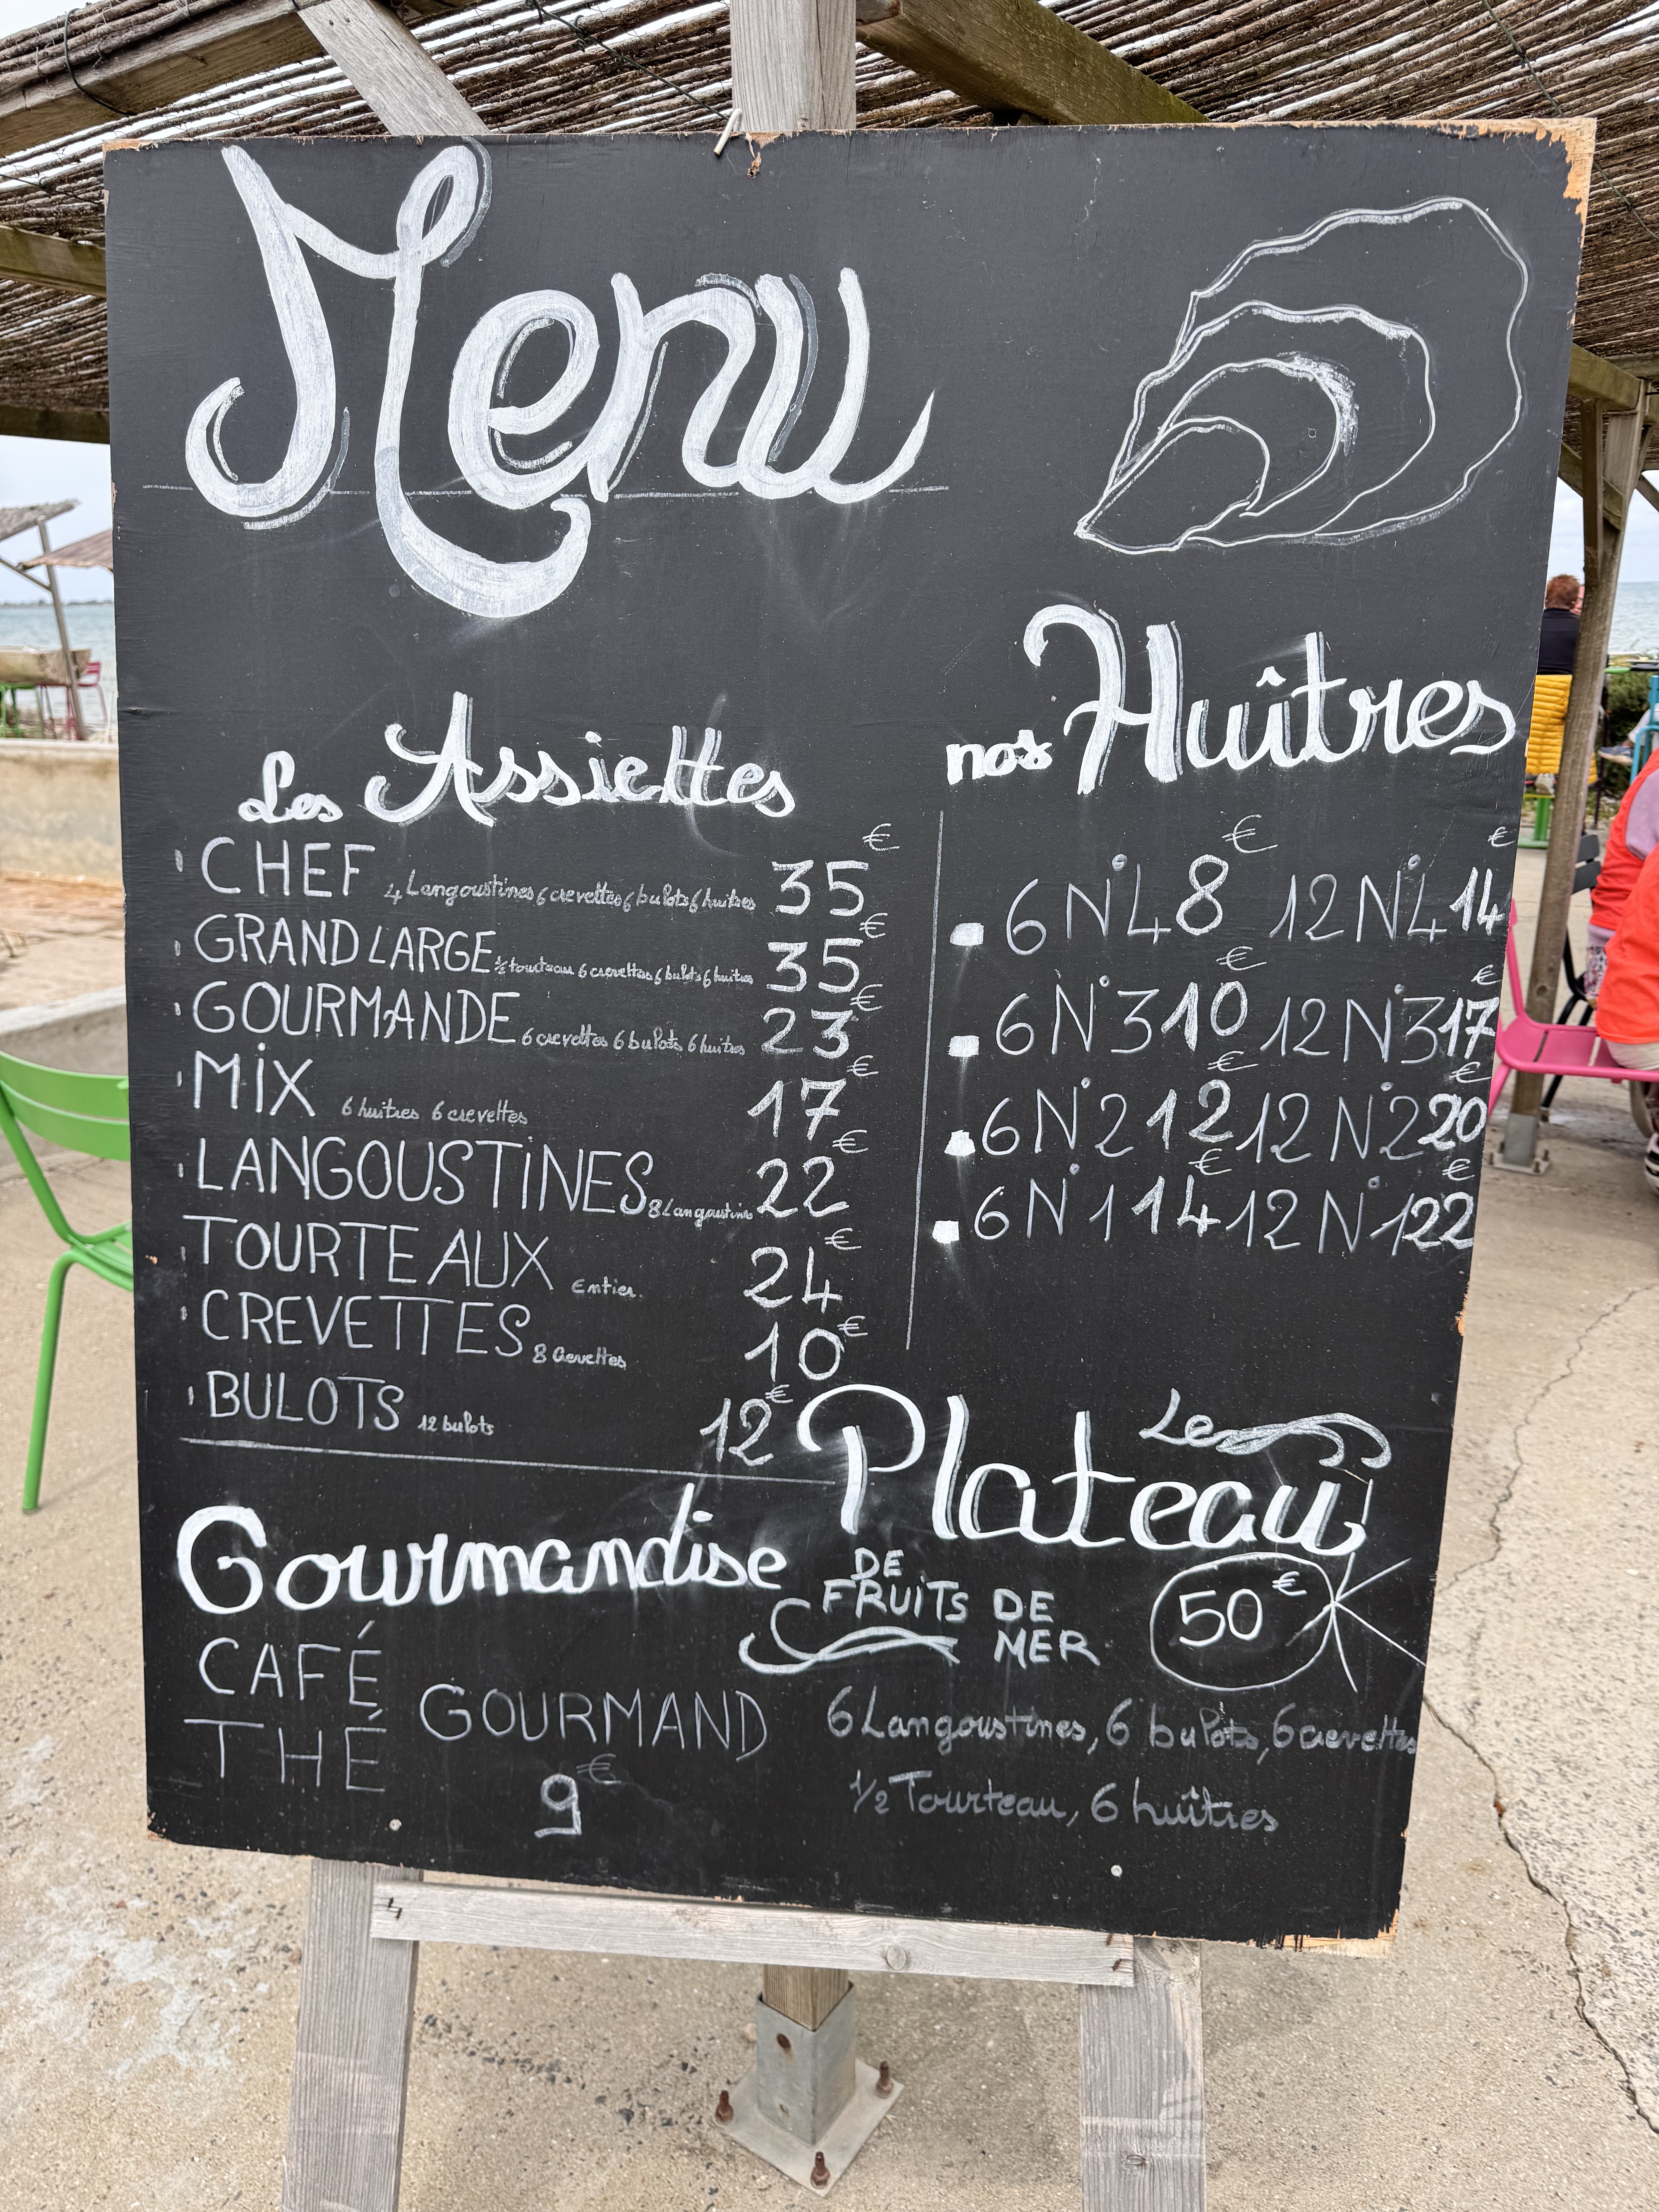 Menu
Les Assiettes
CHEF 4 Langoustines 6 crevettes 6 bulots 6 huîtres 35€
GRAND LARGE ½ tourteau 6 crevettes 6 bulots 6 huîtres 35€
GOURMANDE 6 crevettes 6 bulots 6 huîtres 23€
MIX 6 huitres 6 crevettes 17€
LANGOUSTINES 8 Langoustines 22€
TOURTEAUX Entier 24€
CREVETTES 8 Crevettes 10€
BULOTS 12 bulots 12€
nos Huîtres
6 N°4 8€ 12 N°4 14€
6 N°3 10€ 12 N°3 17€
6 N°2 12€ 12 N°2 20€
6 N°1 14€ 12 N°1 22€
Gourmandise
CAFÉ
THÉ
GOURMAND
9€
Le
Plateau
DE
FRUITS DE
MER
50€
6 Langoustines, 6 bulots, 6 crevettes
1/2 Tourteau, 6 huîtres